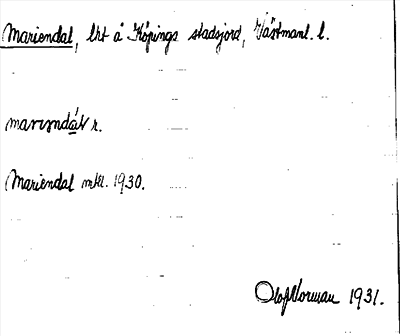 Mariendal, lht å Köpings stadsjord, Västmanl. l.
marɩndȧ́lɩ r.
Mariendal mkl. 1930.
Olof Norman 1931.